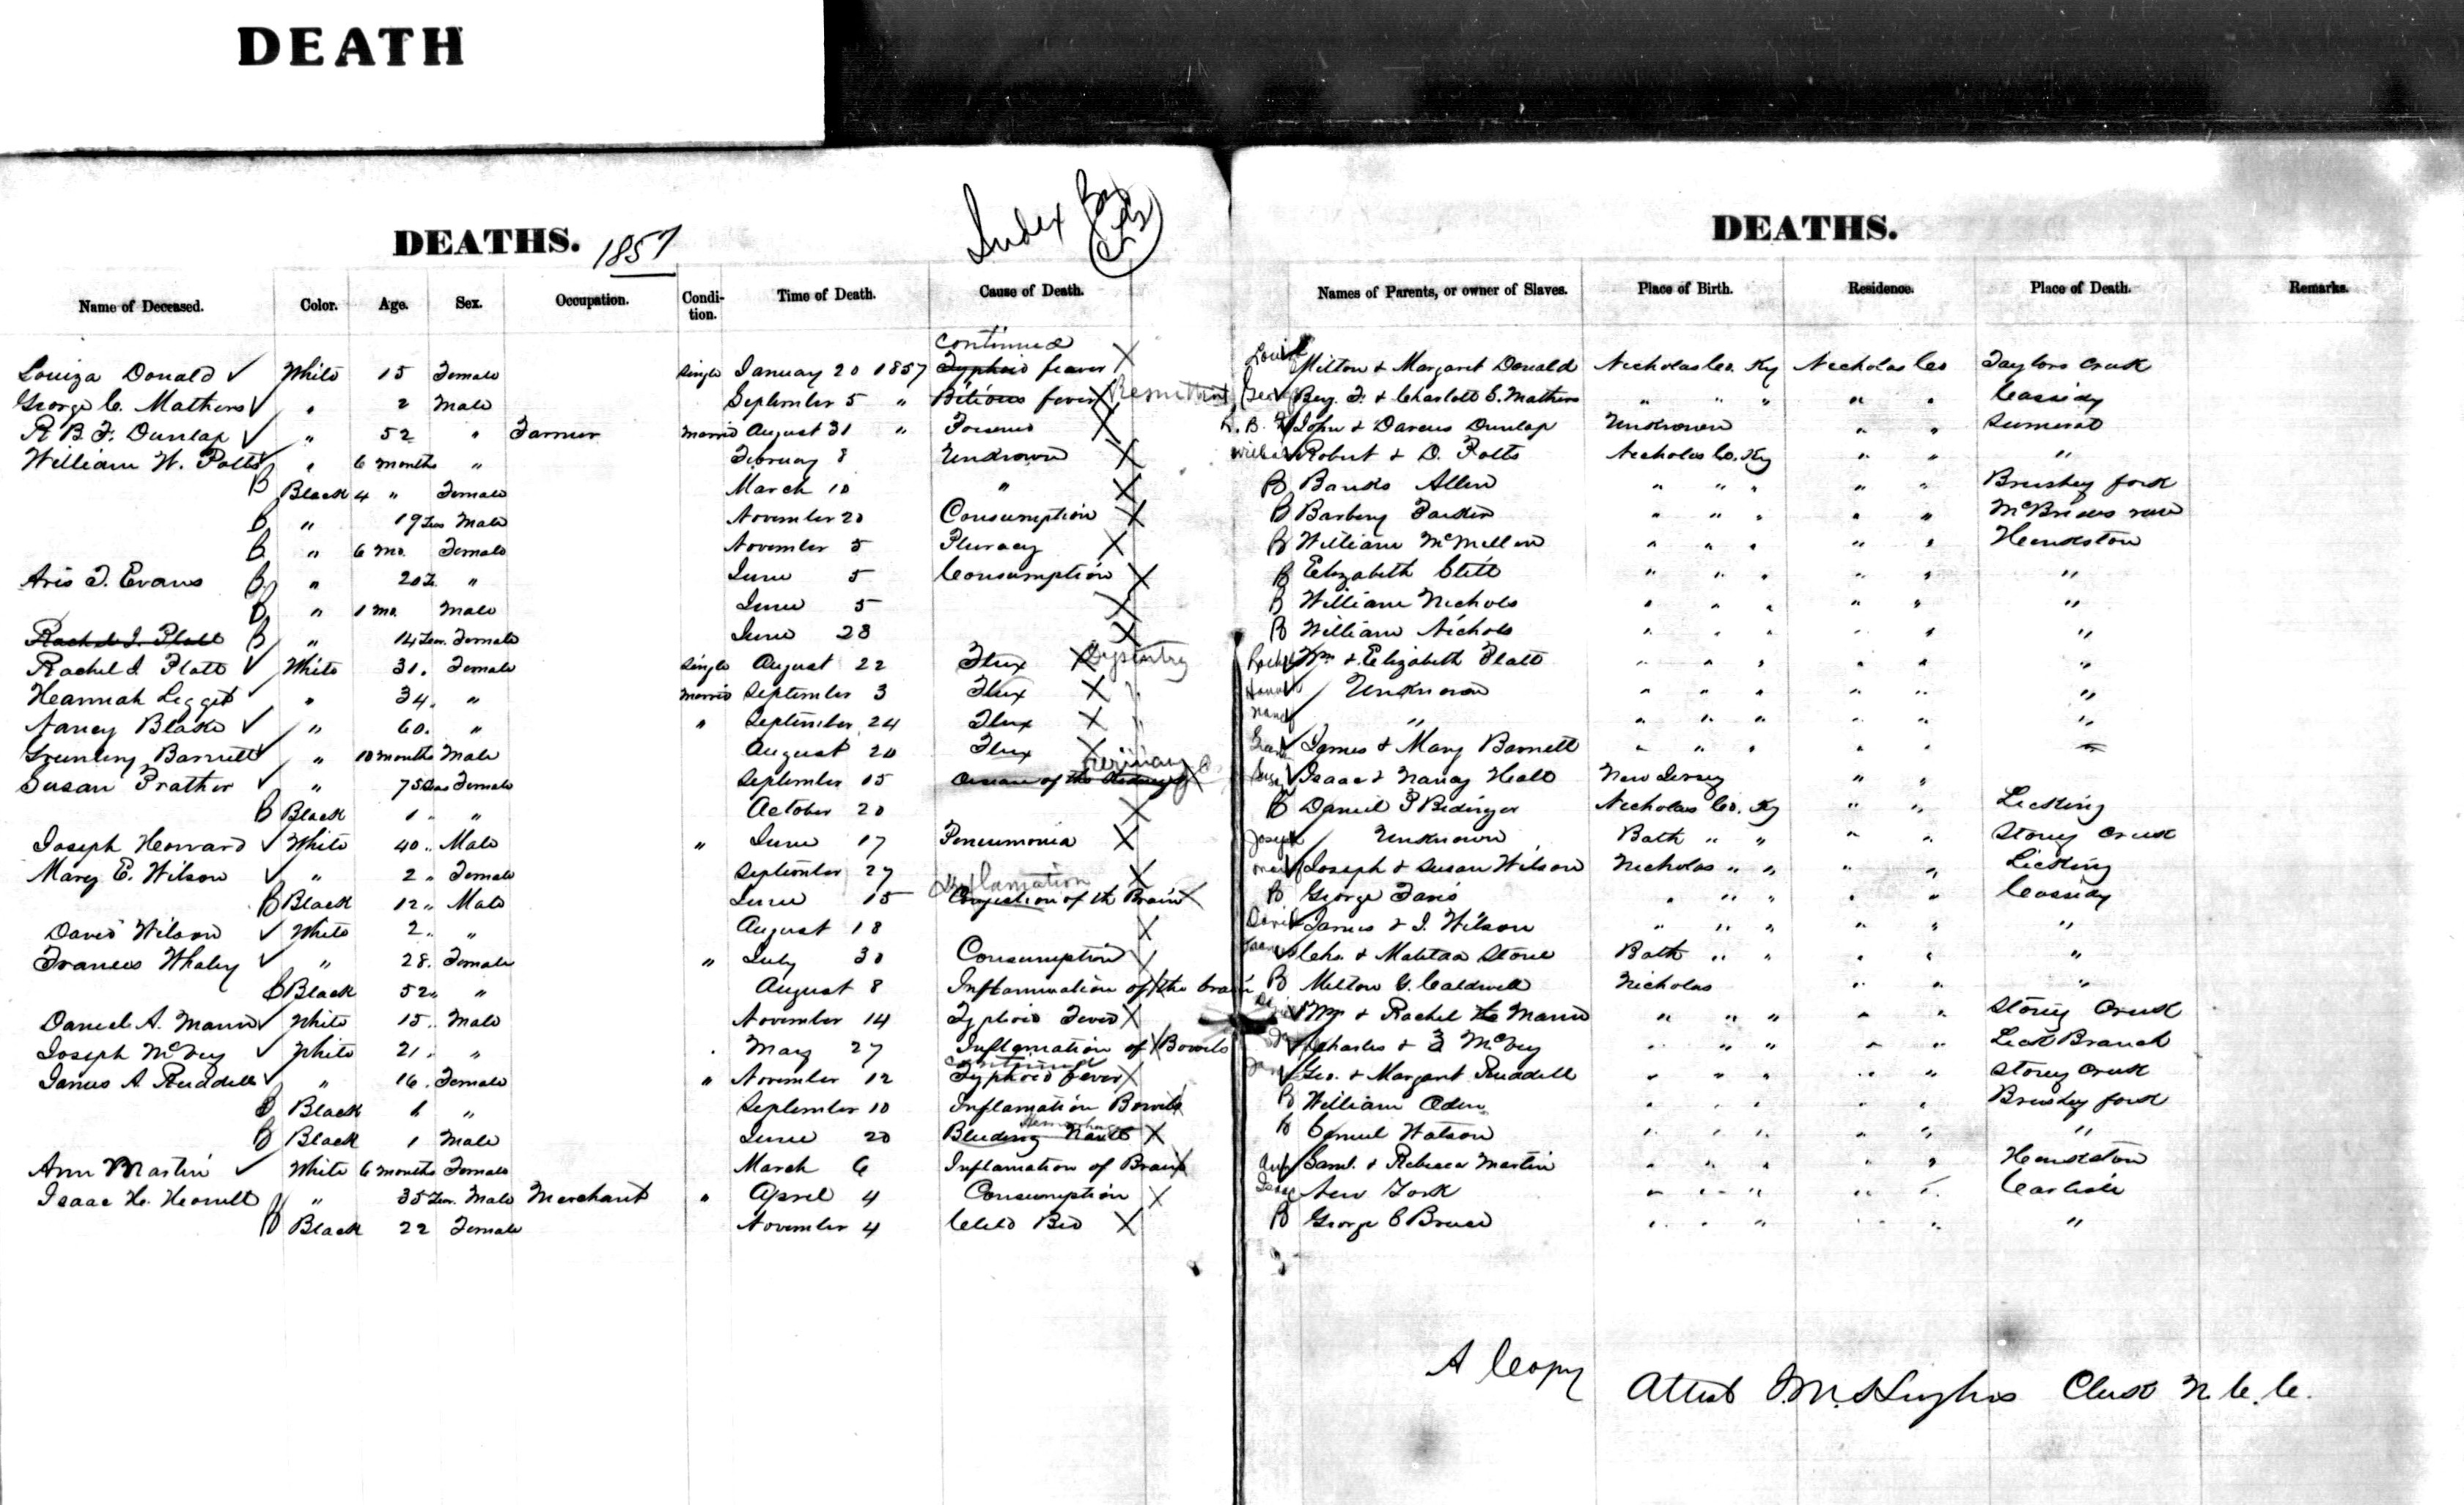 DEATH
DEATHS. 1857
Index
DEATHS.
Name of Deceased. Color. Age. Sex. Occupation. Condi-tion. Time of Death. Cause of Death. Names of Parents, or owner of Slaves. Place of Birth. Residence. Place of Death. Remarks.
continued
Louiza Donald ✓ White 15 Female Single January 20 1857 Typhoid feaver X Milton & Margaret Donald Nicholas Co. Ky Nicholas Co Taylors Creek
George C. Mathers ✓ " 2 Male September 5 " Bilious fever X Remittent Geo ✓ Benj. F. & Charlott S. Mathers " " " " " Cassidy
R B. F. Dunlap ✓ " 52 " Farmer Married August 31 " X R. B. F ✓ John & Darcus Dunlap Unknown " " Sumerset
William W. Potts ✓ " 6 months " February 8 Unknown X ✓ Robert & D. Potts Nicholas Co. Ky " " "
B Black 4 " Female March 10 " X B Banks Allen " " " " " Brushy fork
B " 19 Male November 20 Consumption X B Barbery Parker " " " " "
B " 6 mo. Female November 5 Pluracy X B William McMillen " " " " " Hinkston
Aris T. Evans B " 20 " June 5 Consumption X B Elizabeth Stitt " " " " " "
B " 1 mo. Male June 5 X B William Nichols " " " " " "
Rachel I. Platt B " 14 Female June 28 X B William Nichols " " " " " "
Rachel I Platt ✓ White 31. Female Single August 22 Flux X Dysentry ✓ Wm & Elizabeth Platt " " " " " "
Heannah Legget ✓ " 34. " Married September 3 Flux X " ✓ Unknown " " " " " "
Nancy Blake ✓ " 60. " " September 24 Flux X " Nancy " " " " " " "
Greenbery Barnett ✓ " 10 months Male August 20 Flux X ✓ James & Mary Barnett " " " " " "
Susan Prather ✓ " 75 Female September 15 of the X ✓ Isaac & Nancy Heall New Jersey " "
B Black 1 " " October 20 X B Daniel P Bedinger Nicholas Co. Ky " " Licking
Joseph Howard ✓ White 40 " Male " June 17 Pneumonia X Joseph ✓ Unknown Bath " " " " Stoney Creek
Mary E. Wilson ✓ " 2 " Female September 27 X ✓ Joseph & Susan Wilson Nicholas " " " " Licking
Inflamation
B Black 12 " Male June 15 Conjestion of th Brain X B George Davis " " " " " Cassidy
David Wilson ✓ White 2. " August 18 X David ✓ James & I. Wilson " " " " " "
Frances Whaley ✓ " 28. Female " July 30 Consumption X ✓ & Stone Bath " " " " "
B Black 52 " " August 8 Inflammation of the brain X B Milton G. Caldwell Nicholas " " "
Daniel A. Mann ✓ White 15. Male November 14 Typhoid Fever X ✓ Wm & Rachel Mann " " " " " Stoney Creek
Joseph McVey ✓ White 21. " May 27 Inflamation of Bowels X ✓ Charles & McVey " " " " " Branch
continued
Janus A. Ruddell ✓ " 16. Female " November 12 Typhoid fever X ✓ Geo. & Margaret Ruddell " " " " " Stoney Creek
B Black 6 " September 10 Inflamation Bowels B William Oden " " " " " Brushy fork
B Black 1 Male June 20 Bleeding X B Watson " " " " " "
Ann Martin ✓ White 6 months Female March 6 Inflamation of Brain X Ann ✓ Saml. & Rebecca Martin " " " " " Hinkston
Isaac H. " 35 Male Merchant " April 4 Consumption X Isaac New York " " " " " Carlisle
B Black 22 Female November 4 Child Bed X B George C Bruce " " " " " "
A Copy
Attest Clerk N. C. C.